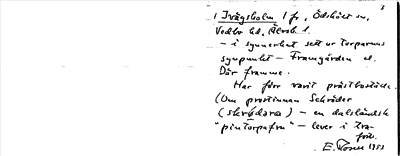 1 Trägsholm 1 fr, Ödskölt sn,
Vedbo hd, Älvsb l.
– i synnerhet sett ur torparnas
synpunkt – Framgården el.
Där framme.
Har förr varit prästbostäde.
(Om prostinnan Schröder
– en dalsländsk
"pintorpafru" – lever i tra-
E. Rosen 1933